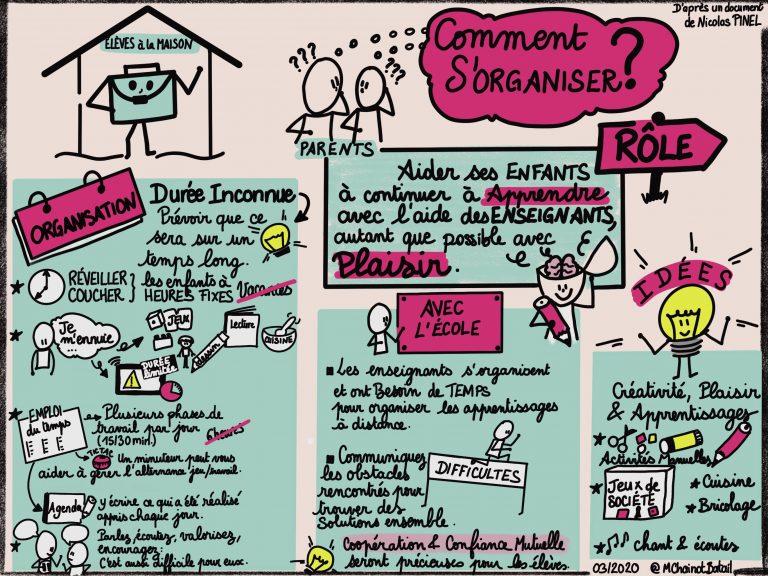 D'après un document
de Nicolas PINEL
ÉLÈVES à la MAISON
Comment
S'ORGANISER?
???
???
PARENTS
RÔLE
Aider ses ENFANTS
à continuer à Apprendre
avec l'aide des ENSEIGNANTS,
autant que possible avec
Plaisir.
ORGANISATION
Durée Inconnue
Prévoir que ce
sera sur un
temps long.
RÉVEILLER
COUCHER } les enfants à
HEURES FIXES Vacances
Je
m'ennuie
JEUX
Lecture
CUISINE
Dessin
DURÉE
limitée
EMPLOI
du temps
Plusieurs phases de
travail par jour
(15/30min.) 6heures
TIC TAC
Un minuteur peut vous
aider à gérer l'alternance jeu/travail.
Agenda
y écrire ce qui a été réalisé
appris chaque jour.
Parlez, écoutez, valorisez,
encouragez:
C'est aussi difficile pour eux.
AVEC
L'ÉCOLE
Les enseignants s'organisent
et ont Besoin de TEMPS
pour organiser les apprentissages
à distance.
Communiquez
les obstacles
rencontrés pour
trouver des
Solutions ensemble.
DIFFICULTÉS
Coopération & Confiance Mutuelle
seront précieuses pour les élèves.
IDÉES
Créativité, Plaisir
& Apprentissages
Activités Manuelles
Jeux de
SOCIÉTÉ
Cuisine
Bricolage
chant & écoutes
03/2020 @MChainotBatail